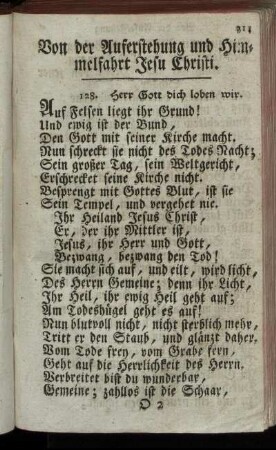 211
Von der Auferstehung und Him-
melfahrt Jesu Christi.
128. Herr Gott dich loben wir.
Auf Felsen liegt ihr Grund!
Und ewig ist der Bund,
Den Gott mit seiner Kirche macht.
Nun schreckt sie nicht des Todes Nacht;
Sein großer Tag, sein Weltgericht,
Erschrecket seine Kirche nicht.
Besprengt mit Gottes Blut, ist sie
Sein Tempel, und vergehet nie.
Ihr Heiland Jesus Christ,
Er, der ihr Mittler ist,
Jesus, ihr Herr und Gott,
Bezwang, bezwang den Tod!
Sie macht sich auf, und eilt, wird licht,
Des Herrn Gemeine; denn ihr Licht,
Ihr Heil, ihr ewig Heil geht auf;
Am Todeshügel geht es auf!
Nun blutvoll nicht, nicht sterblich mehr,
Tritt er den Staub, und glänzt daher.
Vom Tode frey, vom Grabe fern,
Geht auf die Herrlichkeit des Herrn.
Verbreitet bist du wunderbar,
Gemeine; zahllos ist die Schaar,
O 2